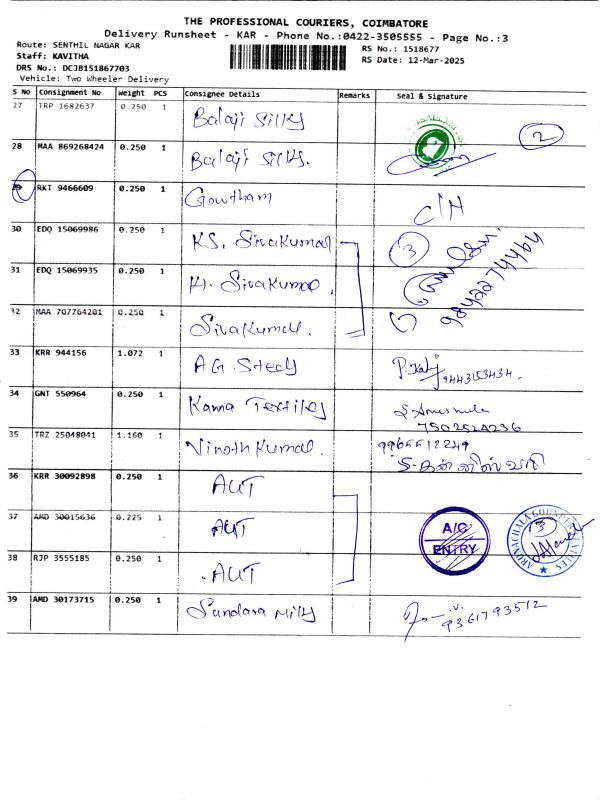 THE PROFESSIONAL COURIERS, COIMBATORE
Delivery Runsheet - KAR - Phone No.:0422-3505555 - Page No.:3
Route: SENTHIL NAGAR KAR
RS No.: 1518677
Staff: KAVITHA
RS Date: 12-Mar-2025
DRS No.: DCJB151867703
Vehicle: Two Wheeler Delivery
S No Consignment No Weight PCS Consignee Details Remarks Seal & Signature
27 TRP 1682637 0.250 1 Balaji Silks
2
28 MAA 869268424 0.250 1 Balaji Silks.
29 RKT 9466609 0.250 1 Gowtham C/H
30 EDQ 15069986 0.250 1 KS. Sivakumar 3
31 EDQ 15069935 0.250 1 H. Sivakumar. 9842274464
32 MAA 707764201 0.250 1 Sivakumar.
33 KRR 944156 1.072 1 A.G. Steels 9443153434.
34 GNT 550964 0.250 1 Kanna Textiles
7502524236
35 TRZ 25048041 1.160 1 Vinothkumar. 9965512249
36 KRR 30092898 0.250 1 AUT
37 AMD 30015636 0.225 1 AUT A/C ENTRY 13
38 RJP 3555185 0.250 1 AUT
39 AMD 30173715 0.250 1 Sundara Mills 9361793512